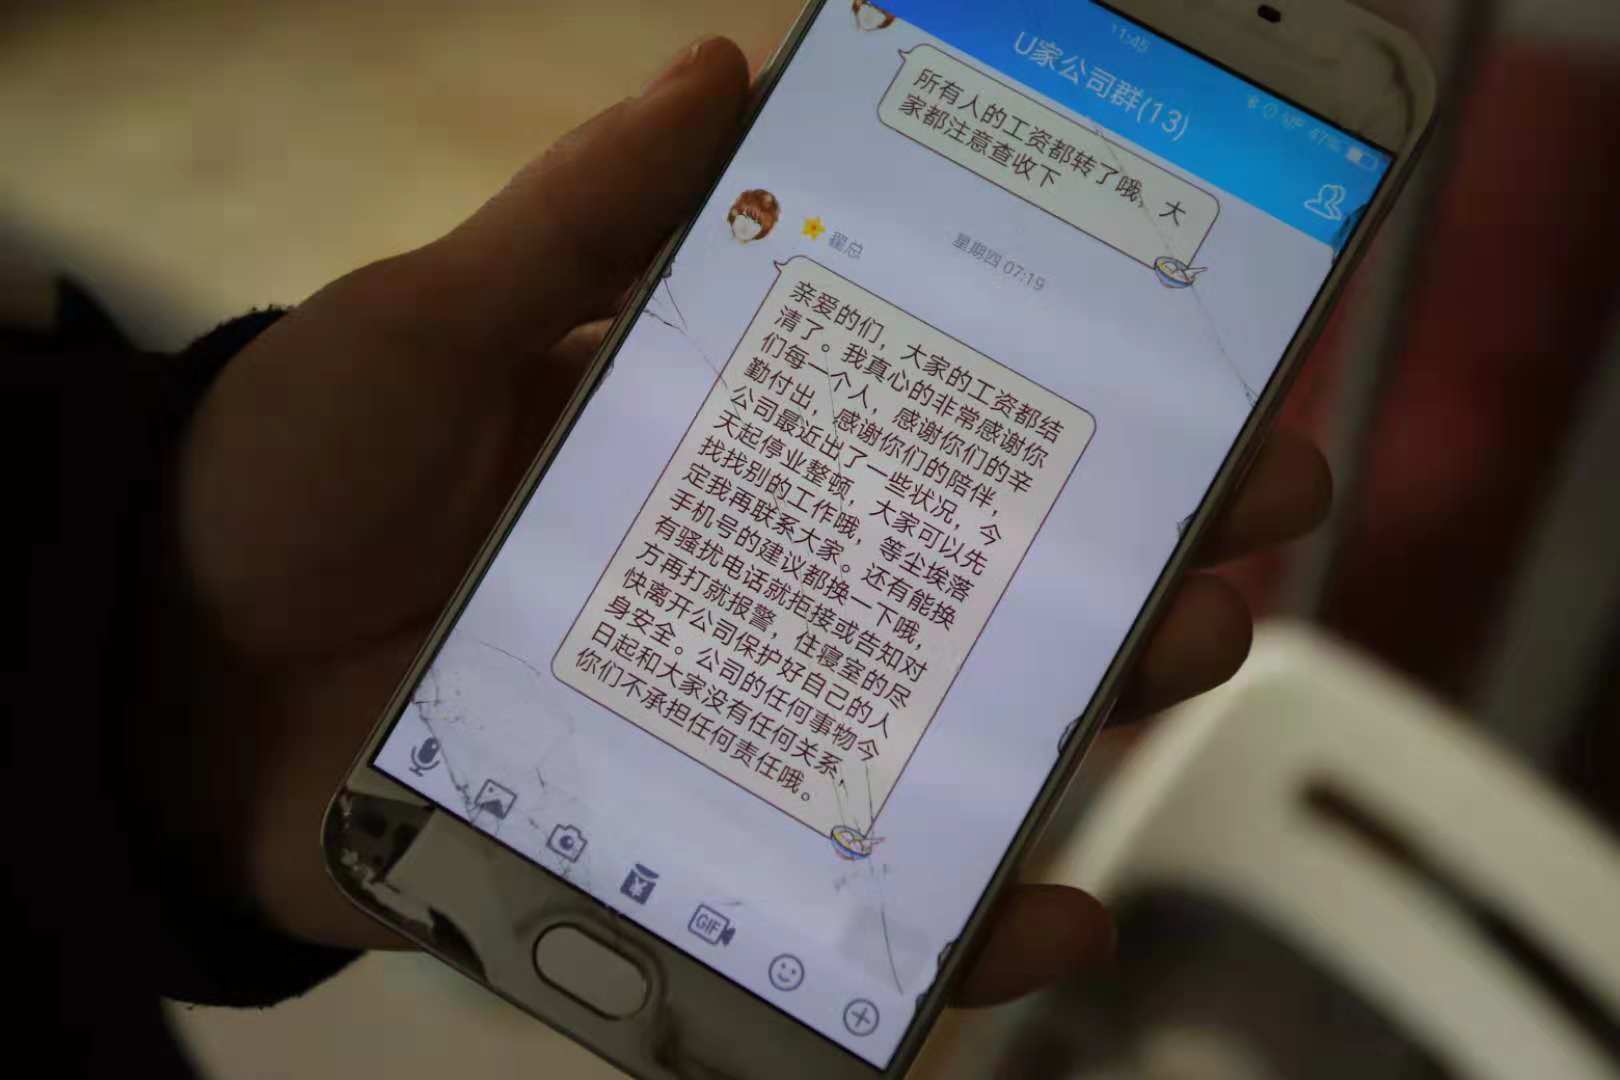 11:45
47%
U家公司群(13)
所有人的工资都转了哦，大
家都注意查收下
星期四 07:19
翟总
亲爱的们，大家的工资都结
清了。我真心的非常感谢你
们每一个人，感谢你们的辛
勤付出，感谢你们的陪伴，
公司最近出了一些状况，今
天起停业整顿，大家可以先
找找别的工作哦，等尘埃落
定我再联系大家。还有能换
手机号的建议都换一下哦，
有骚扰电话就拒接或告知对
方再打就报警，住寝室的尽
快离开公司保护好自己的人
身安全。公司的任何事物今
日起和大家没有任何关系，
你们不承担任何责任哦。
GIF